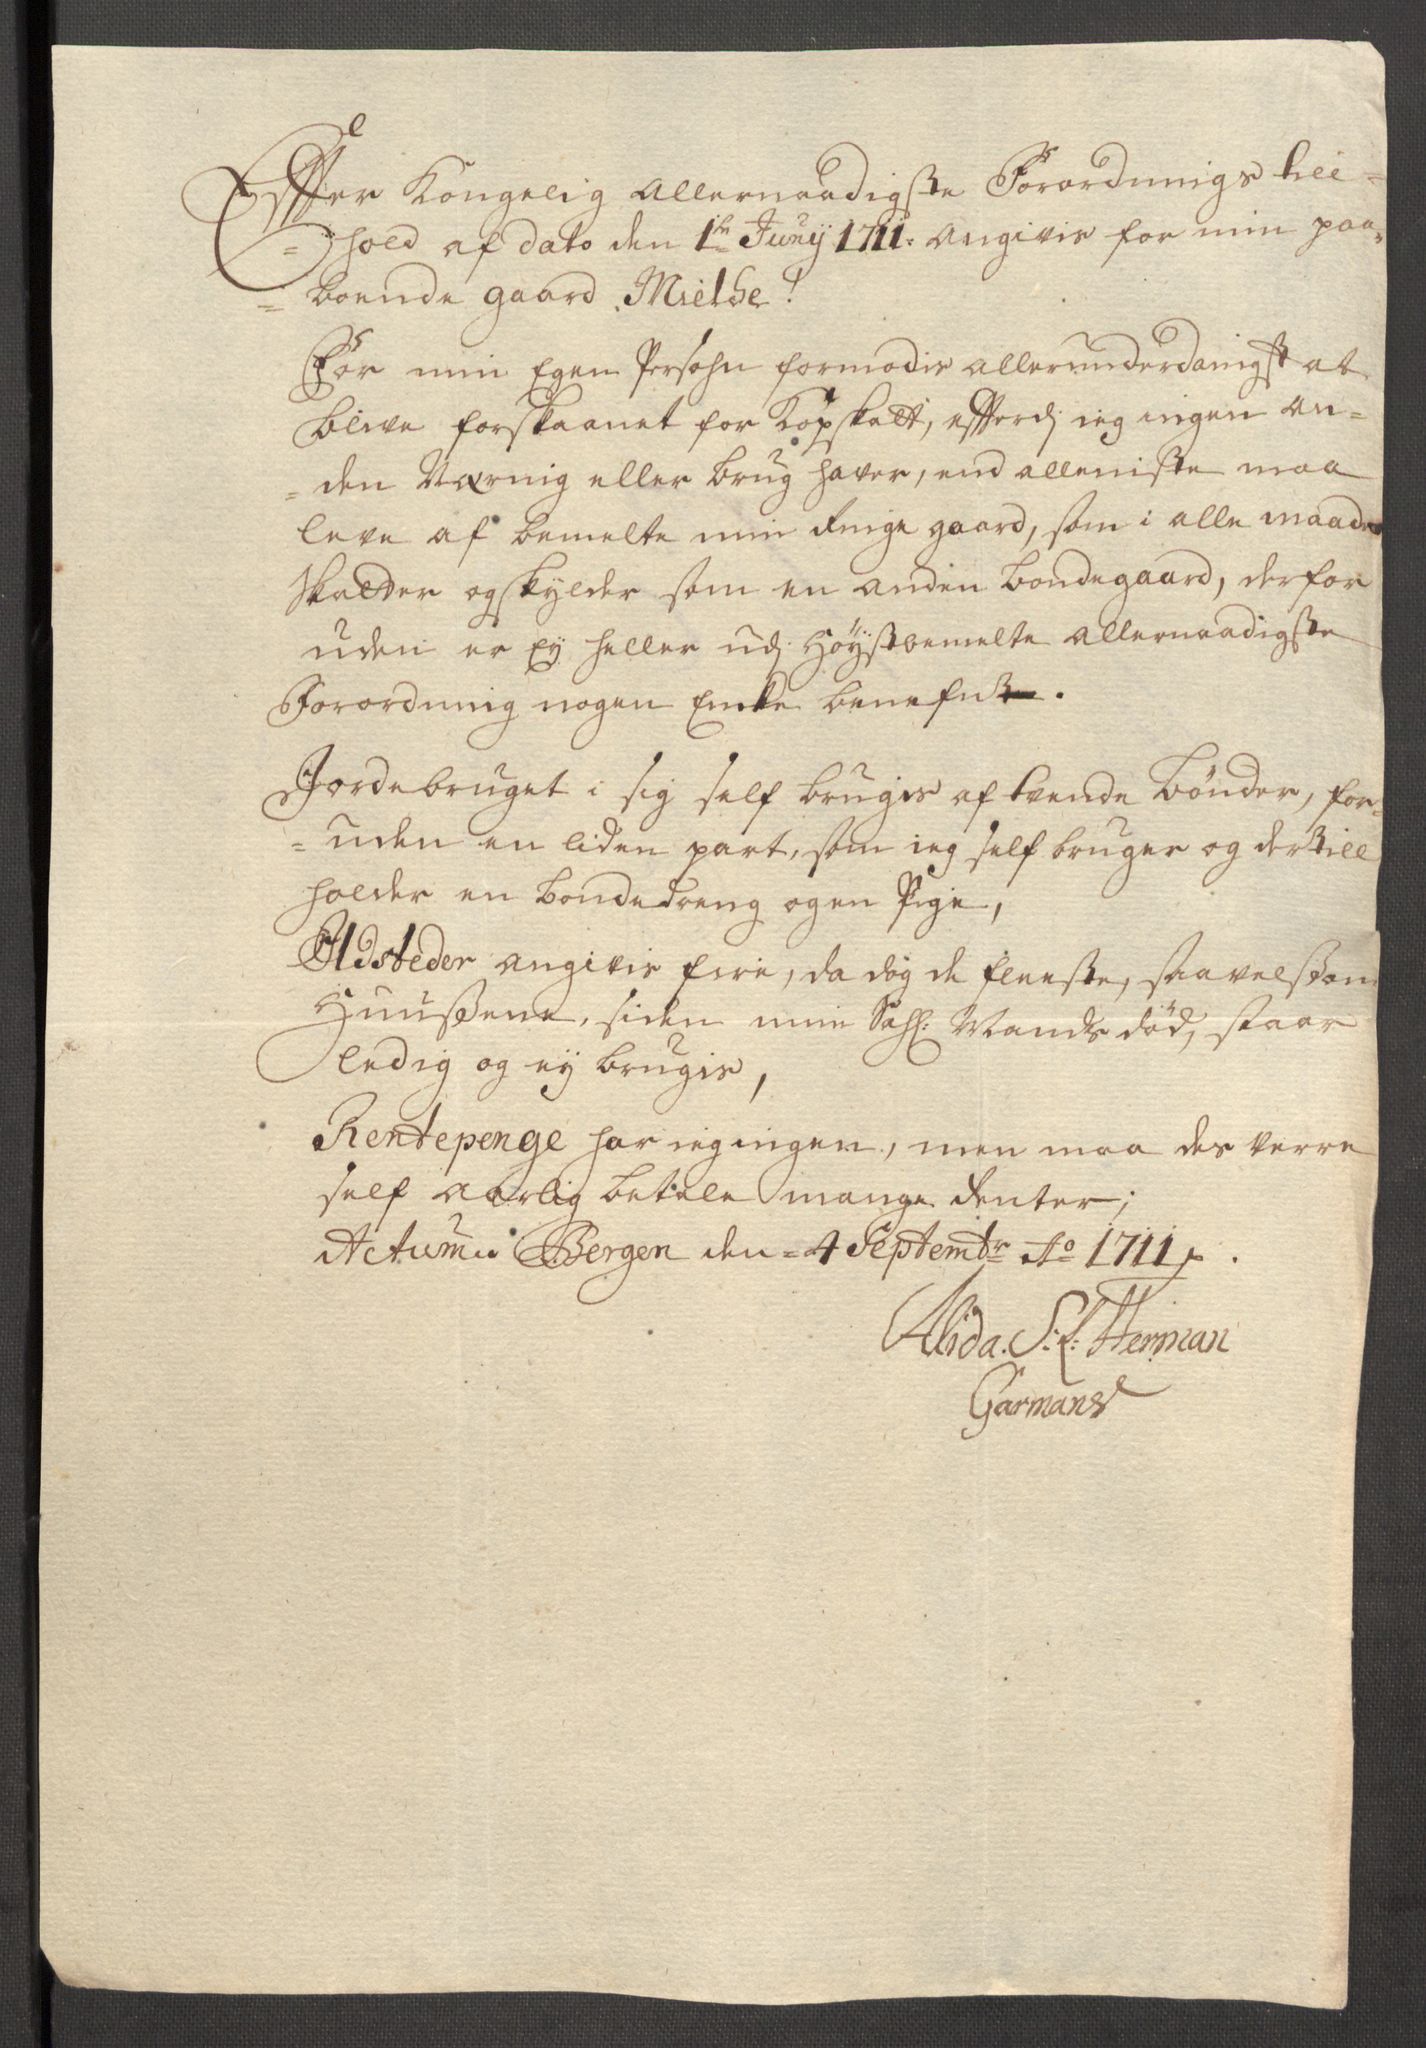 Effter Kongelig allernaadigste Forordnings hel=
=hold af dato den 1te Junij 1711. angivis for min paa=
=boende gaard Mielhe!
For min Egen Persohn formodis allerunderdanigst at
blive forskaanet for Kopskatt, efterdj ieg ingen an=
=den Næring eller brug haver, end alleniste maa
leve af bemelte min Eenige gaard, som i alle maader
skatter og skylder som en anden bondegaard, derfor
uden er Ej heller udj Høystbemelte allernaadigste
Forordning nogen Encke benefnt.
Jordebruget i sig self bruges af tvende Bönder, for=
=uden en liden part, som ieg self bruger og dertill
holder en bondedreng og en Pige,
Ildsteder angivis fire, da dog de fleeste, saavelsom
Huussene, siden min Sahl: Mands död, staar
ledig og ej brugis,
Rentepenge har ieg ingen, men maa des verre
self aarlig betale mange Renter;
Actum Bergen den 4 Septembr Ao 1711
Alida S: H: Herman
Garmans